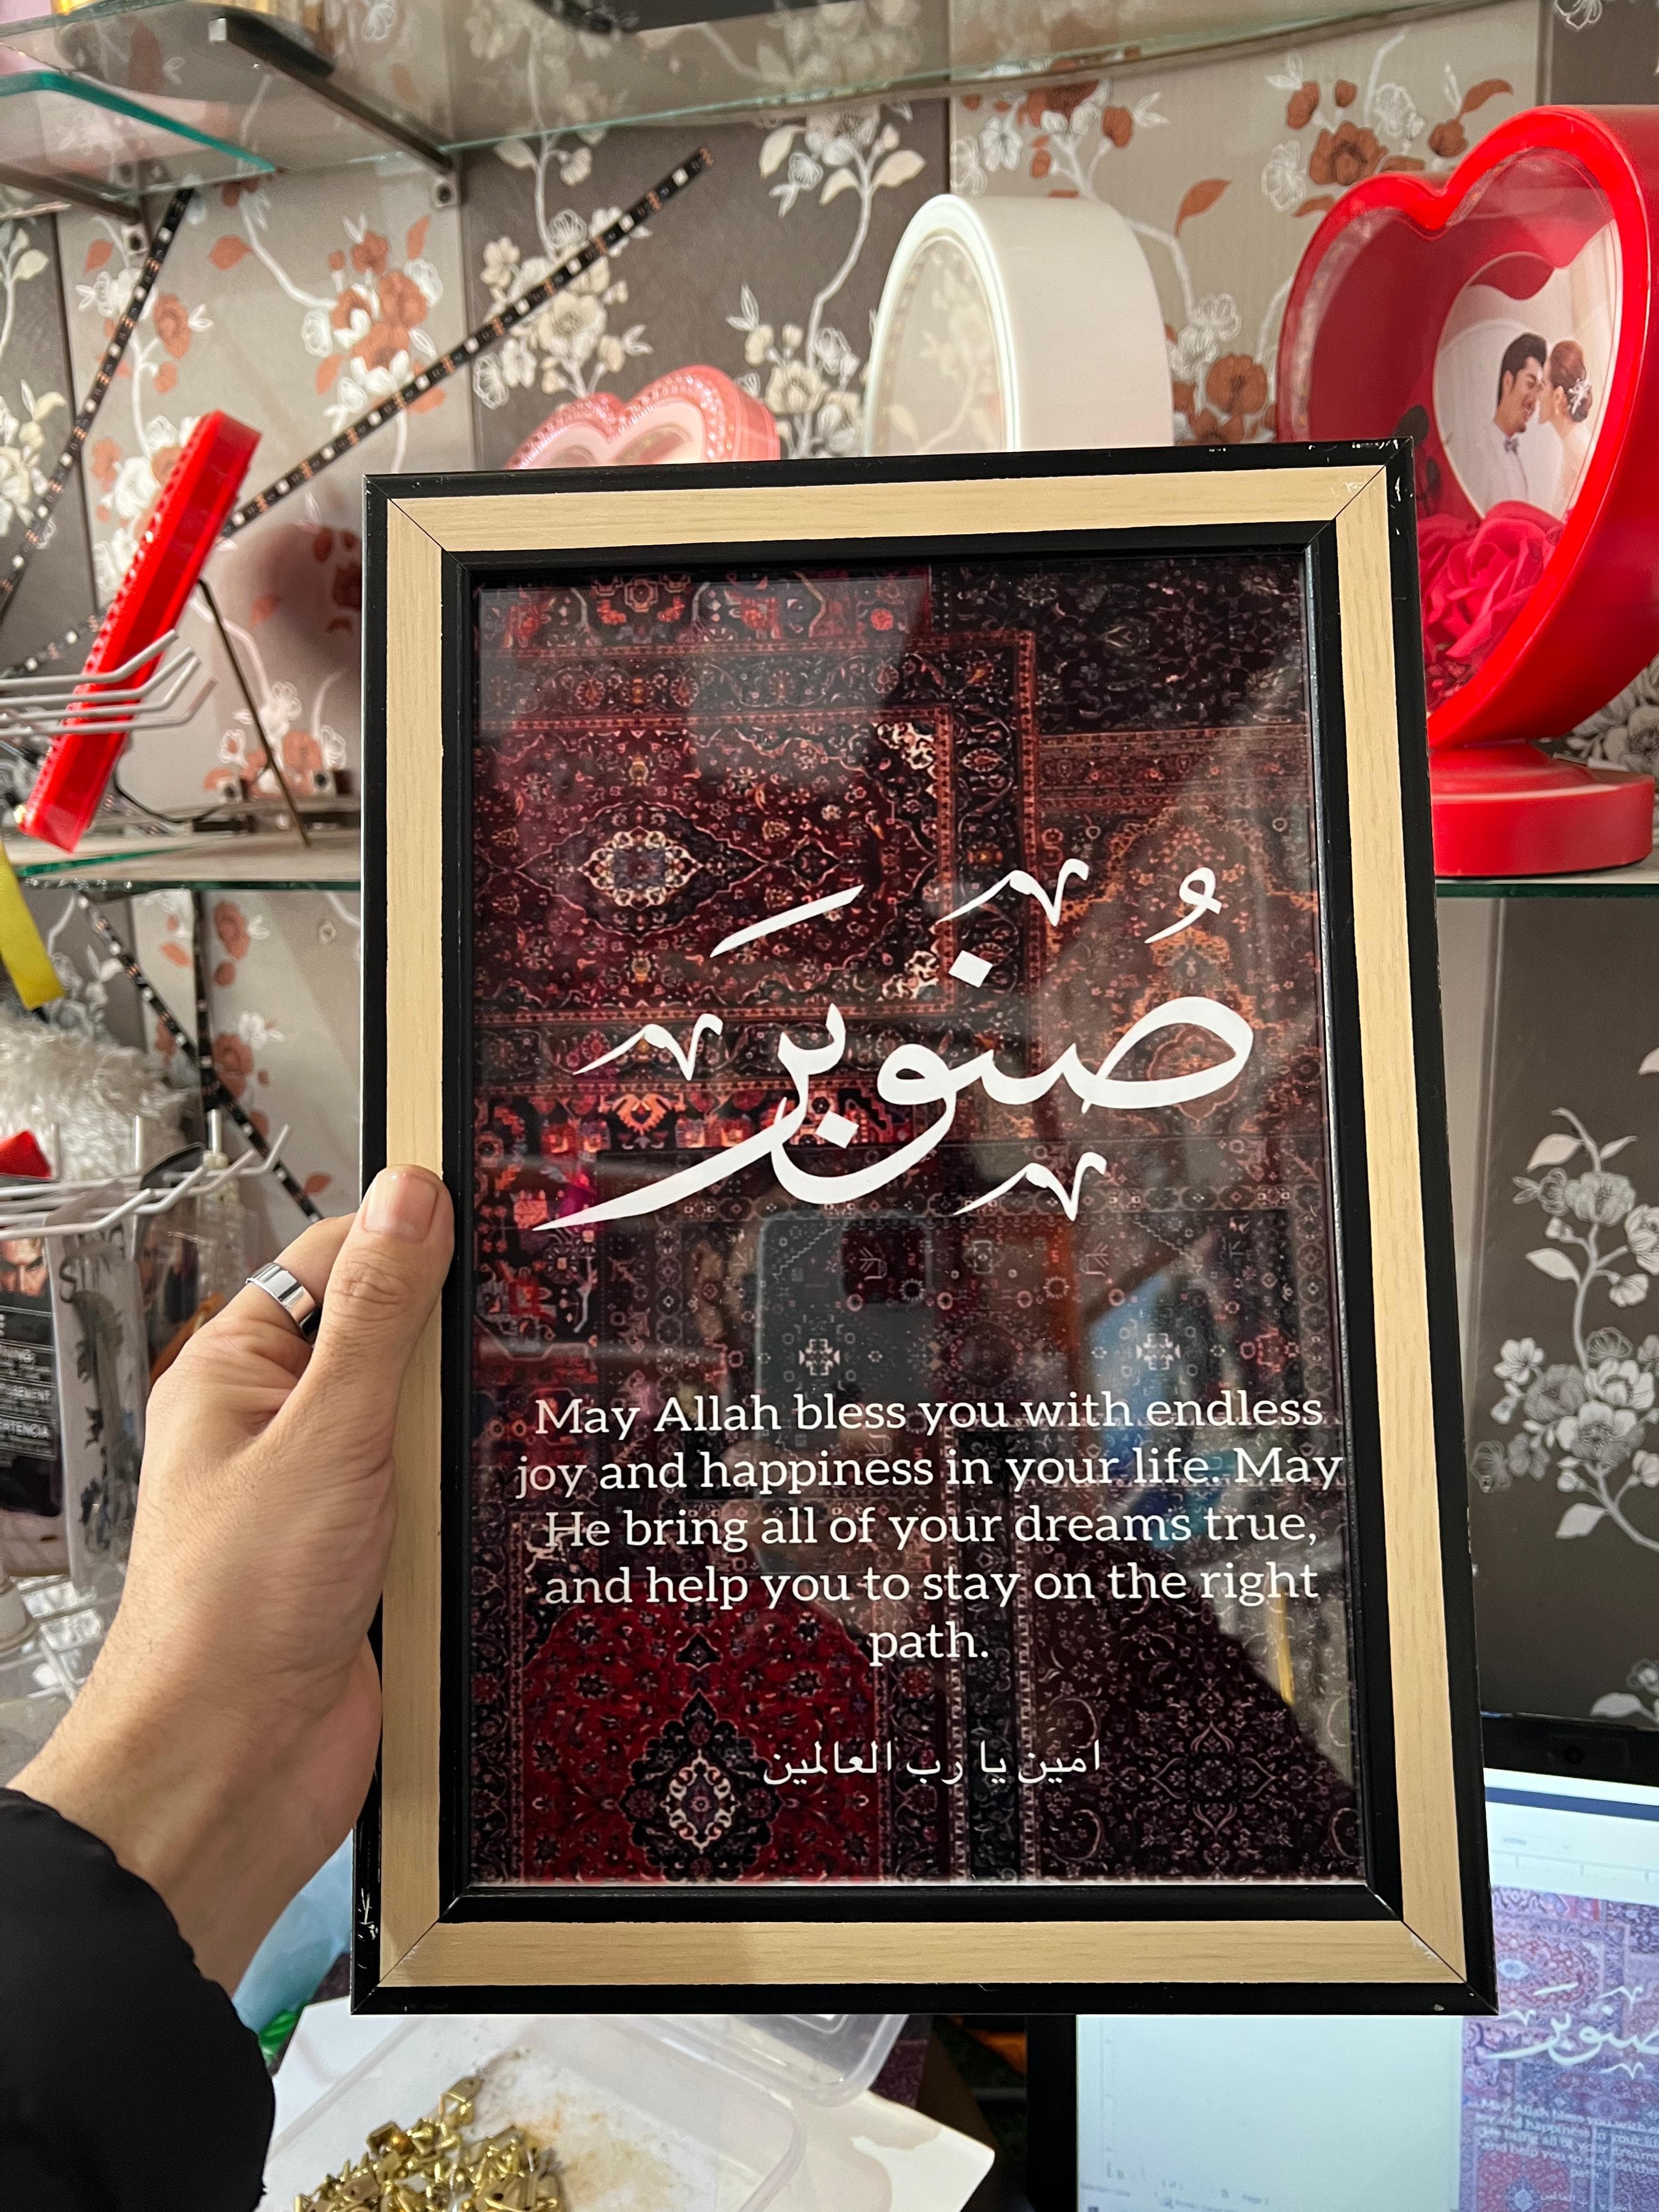 صُنوبَر
May Allah bless you with endless
joy and happiness in your life. May
He bring all of your dreams true,
and help you to stay on the right
path.
امين يا رب العالمين